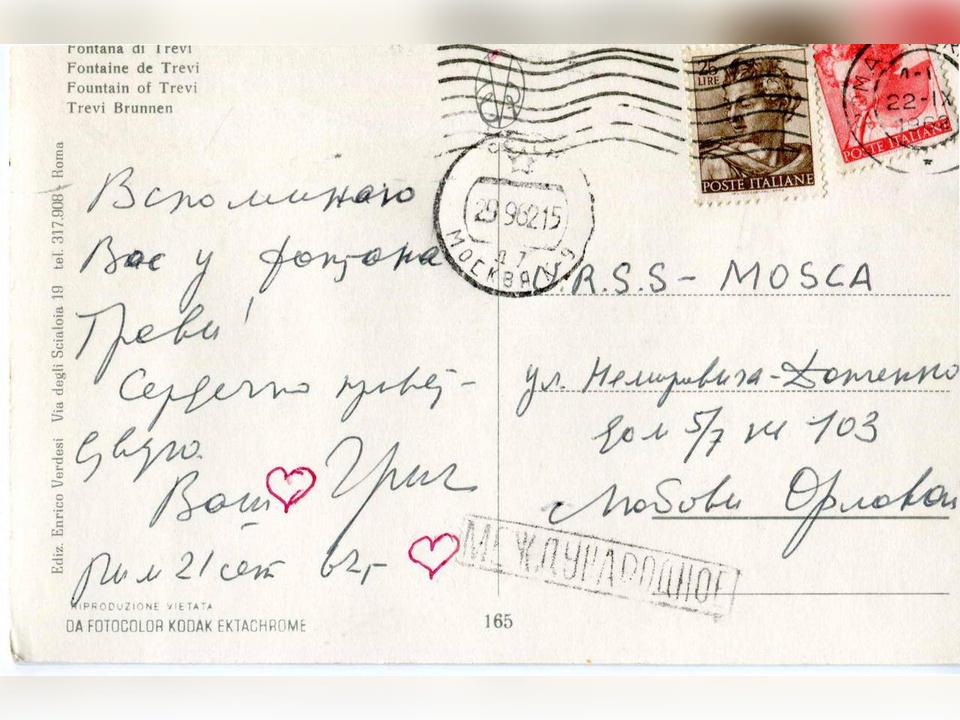 Fontana di Trevi
Fontaine de Trevi
Fountain of Trevi
Trevi Brunnen
Ediz. Enrico Verdesi Via degli Scialoia 19 tel. 317.908 - Roma
Вспоминаю
Вас у фонтана
Треви!
Сердечно привет-
ствую.
Ваш Григ
Рим 21 сент 62
RIPRODUZIONE VIETATA
DA FOTOCOLOR KODAK EKTACHROME
165
25
LIRE
POSTE ITALIANE
POSTE ITALIANE
ROMA
22-IX
29 9 62 15
МОСКВА
U.R.S.S - MOSCA
ул. Немировича-Данченко
дом 5/7 кв 103
Любови Орловой
МЕЖДУНАРОДНОЕ